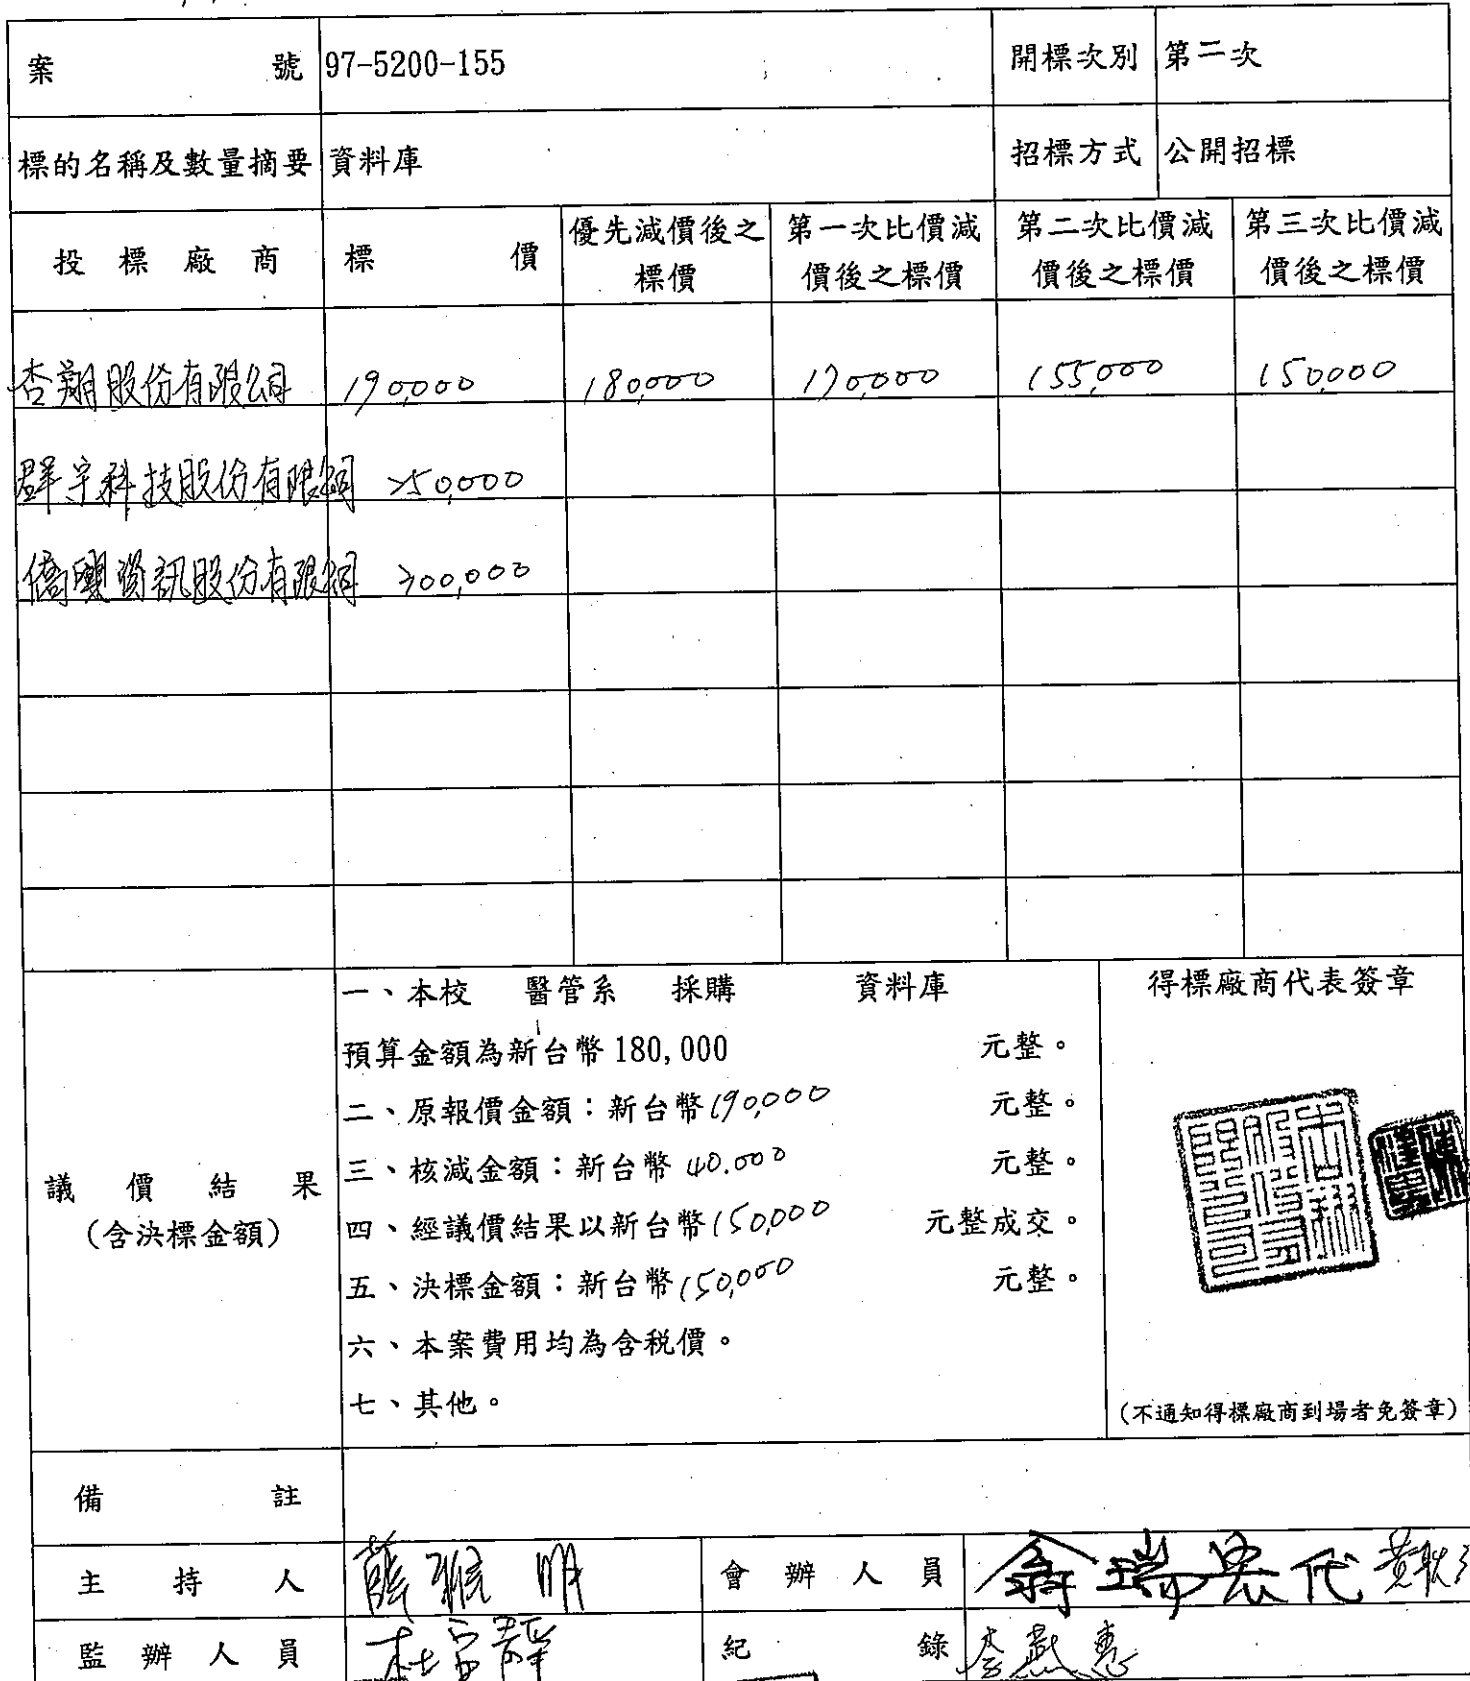 案號 97-5200-155 開標次別 第二次
標的名稱及數量摘要 資料庫 招標方式 公開招標
投標廠商 標價 優先減價後之標價 第一次比價減價後之標價 第二次比價減價後之標價 第三次比價減價後之標價
杏翔股份有限公司 190,000 180,000 170,000 155,000 150,000
群宇科技股份有限公司 250,000
資訊股份有限公司 200,000
議價結果
(含決標金額)
一、本校 醫管系 採購 資料庫
預算金額為新台幣180,000 元整。
二、原報價金額：新台幣190,000 元整。
三、核減金額：新台幣40.000 元整。
四、經議價結果以新台幣150,000 元整成交。
五、決標金額：新台幣150,000 元整。
六、本案費用均為含稅價。
七、其他。
得標廠商代表簽章
(不通知得標廠商到場者免簽章)
備註
主持人 會辦人員
監辦人員 紀錄